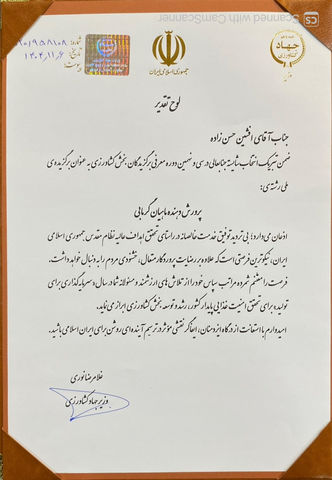 Scanned with CamScanner
CS
جهاد
کشاورزی
جمهوری اسلامی ایران
شماره:
تاریخ: ۱۴۰۴,۱۱,۶
پیوست:
لوح تقدیر
جناب آقای افشین حسن زاده
ضمن تبریک انتخاب شایسته جنابعالی در سی و نهمین دوره معرفی برگزیدگان بخش کشاورزی به عنوان برگزیده‌ی
ملی رشته‌ی:
پرورش دهنده ماهیان گرمابی
اذعان می‌دارد: بی تردید توفیق خدمت خالصانه در راستای تحقق اهداف عالیه نظام مقدس جمهوری اسلامی
ایران، نیکوترین فرصتی است که علاوه بر رضایت پروردگار متعال، خشنودی مردم را به دنبال خواهد داشت.
فرصت را مغتنم شمرده مراتب سپاس خود را از تلاش های ارزشمند و مسئولانه شما در سال «سرمایه‌گذاری برای
تولید»، برای تحقق امنیت غذایی پایدار کشور، رشد و توسعه بخش کشاورزی ابراز می‌نماید.
امیدوارم با استعانت از درگاه ایزد منان، ایفاگر نقشی مؤثر در ترسیم آینده‌ای روشن برای ایران اسلامی باشید.
غلامرضا نوری
وزیر جهاد کشاورزی